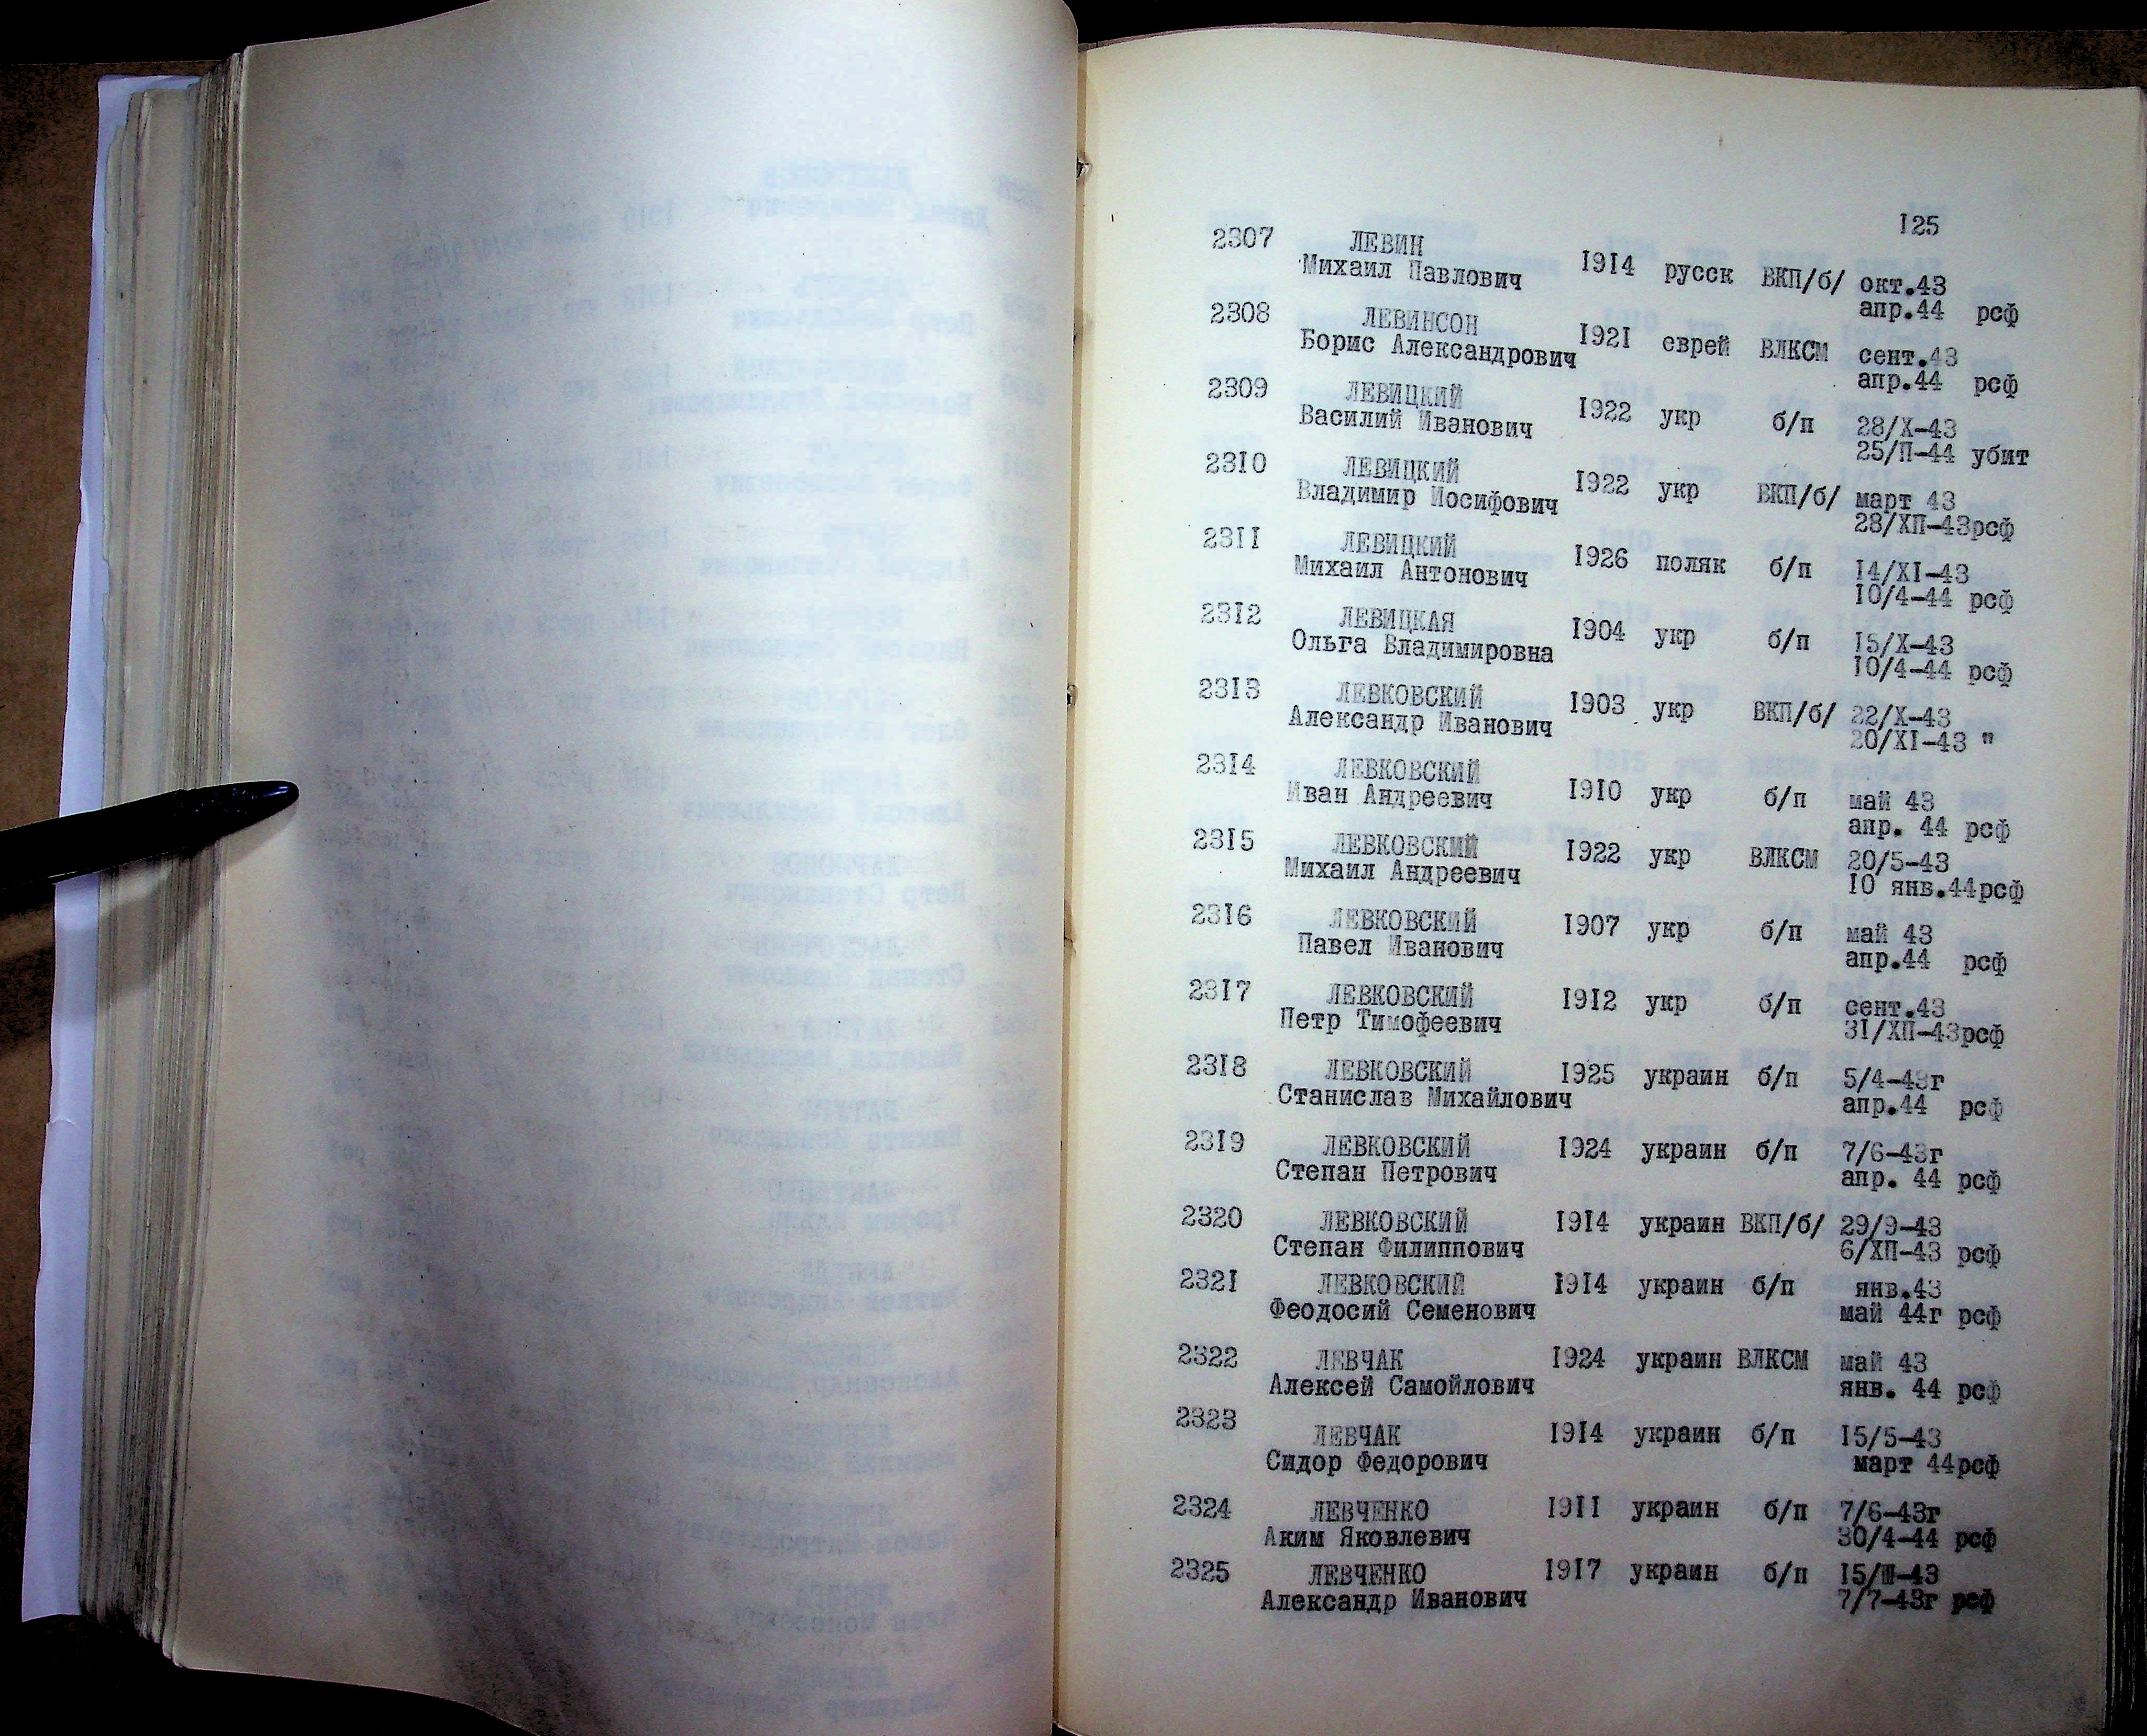 125
2307 ЛЕВИН
Михаил Павлович 1914 русск ВКП/б/ окт.43
апр.44 рсф
2308 ЛЕВИНСОН
Борис Александрович 1921 еврей ВЛКСМ сент.43
апр.44 рсф
2309 ЛЕВИЦКИЙ
Василий Иванович 1922 укр б/п 28/X-43
25/П-44 убит
2310 ЛЕВИЦКИЙ
Владимир Иосифович 1922 укр ВКП/б/ март 43
28/ХП-43рсф
2311 ЛЕВИЦКИЙ
Михаил Антонович 1926 поляк б/п 14/XI-43
10/4-44 рсф
2312 ЛЕВИЦКАЯ
Ольга Владимировна 1904 укр б/п 15/X-43
10/4-44 рсф
2313 ЛЕВКОВСКИЙ
Александр Иванович 1903 укр ВКП/б/ 22/X-43
20/XI-43 "
2314 ЛЕВКОВСКИЙ
Иван Андреевич 1910 укр б/п май 43
апр. 44 рсф
2315 ЛЕВКОВСКИЙ 1922 укр ВЛКСМ 20/5-43
Михаил Андреевич 10 янв.44рсф
2316 ЛЕВКОВСКИЙ 1907 укр б/п май 43
Павел Иванович апр.44 рсф
2317 ЛЕВКОВСКИЙ 1912 укр б/п сент.43
Петр Тимофеевич 31/ХП-43рсф
2318 ЛЕВКОВСКИЙ 1925 украин б/п 5/4-43г
Станислав Михайлович апр.44 рсф
2319 ЛЕВКОВСКИЙ 1924 украин б/п 7/6-43г
Степан Петрович апр. 44 рсф
2320 ЛЕВКОВСКИЙ 1914 украин ВКП/б/ 29/9-43
Степан Филиппович 6/ХП-43 рсф
2321 ЛЕВКОВСКИЙ 1914 украин б/п янв.43
Феодосий Семенович май 44г рсф
2322 ЛЕВЧАК 1924 украин ВЛКСМ май 43
Алексей Самойлович янв. 44 рсф
2323 ЛЕВЧАК 1914 украин б/п 15/5-43
Сидор Федорович март 44рсф
2324 ЛЕВЧЕНКО 1911 украин б/п 7/6-43г
Аким Яковлевич 30/4-44 рсф
2325 ЛЕВЧЕНКО 1917 украин б/п 15/Ш-43
Александр Иванович 7/7-43г рсф